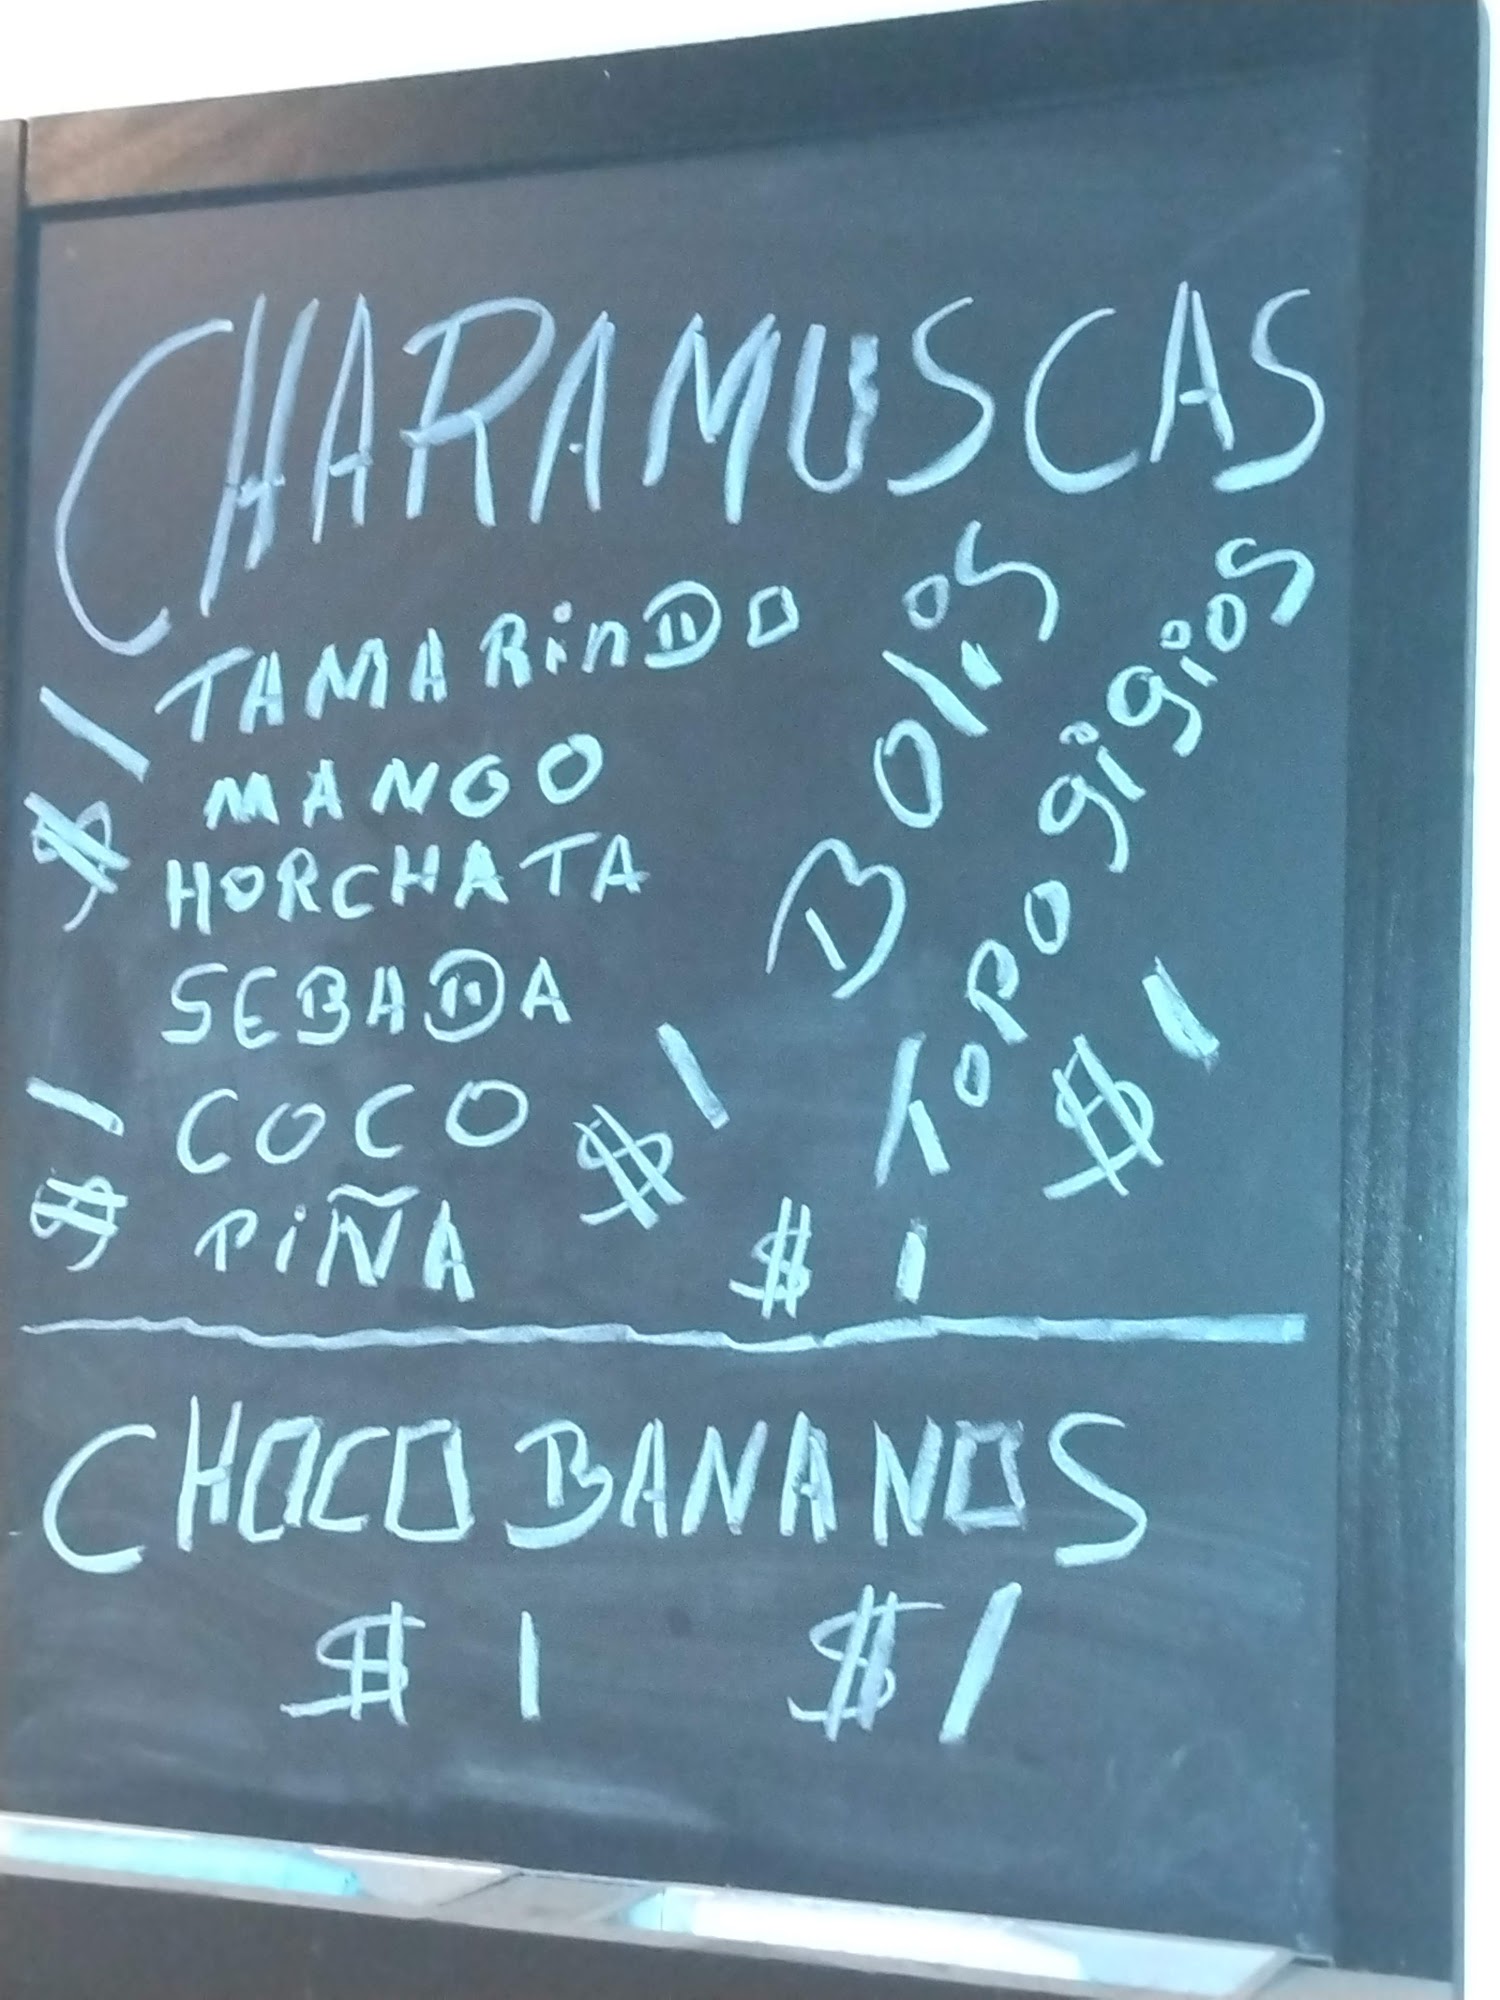 CHARAMUSCAS
TAMARinDO
MANGO
HORCHATA
SEBADA
COCO
PiÑA
$1
$1
$1
Bolis
Topo gigios
$1
$1
CHOCO BANANOS
$1 $1